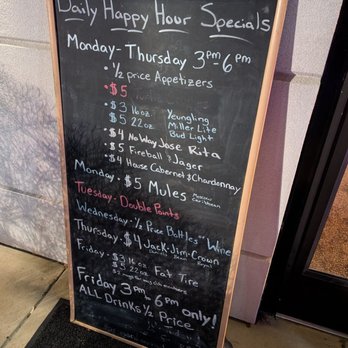 Daily Happy Hour Specials
Monday - Thursday 3pm - 6pm
• ½ price Appetizers
• $5
• $3 16oz Yeungling
$5 22oz Miller Lite
Bud Light
• $4 No Way Jose Rita
• $5 Fireball & Jager
• $4 House Cabernet & Chardonnay
Monday - $5 Mules
Tuesday - Double Points
Wednesday - ½ Price Bottles Wine
Thursday - $4 Jack - Jim - Crown
Friday - $3 16oz
$5 22oz Fat Tire
Friday 3pm - 6pm only!
ALL Drinks ½ Price